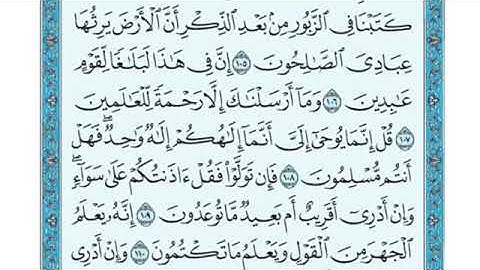 كَتَبْنَا فِي ٱلزَّبُورِ مِنۢ بَعْدِ ٱلذِّكْرِ أَنَّ ٱلْأَرْضَ يَرِثُهَا
عِبَادِيَ ٱلصَّٰلِحُونَ ١٠٥ إِنَّ فِي هَٰذَا لَبَلَٰغًا لِّقَوْمٍ
عَٰبِدِينَ ١٠٦ وَمَآ أَرْسَلْنَٰكَ إِلَّا رَحْمَةً لِّلْعَٰلَمِينَ
١٠٧ قُلْ إِنَّمَا يُوحَىٰٓ إِلَيَّ أَنَّمَآ إِلَٰهُكُمْ إِلَٰهٌ وَٰحِدٌ ۖ فَهَلْ
أَنتُم مُّسْلِمُونَ ١٠٨ فَإِن تَوَلَّوْا۟ فَقُلْ ءَاذَنتُكُمْ عَلَىٰ سَوَآءٍ ۖ
وَإِنْ أَدْرِيٓ أَقَرِيبٌ أَم بَعِيدٌ مَّا تُوعَدُونَ ١٠٩ إِنَّهُۥ يَعْلَمُ
ٱلْجَهْرَ مِنَ ٱلْقَوْلِ وَيَعْلَمُ مَا تَكْتُمُونَ ١١٠ وَإِنْ أَدْرِي